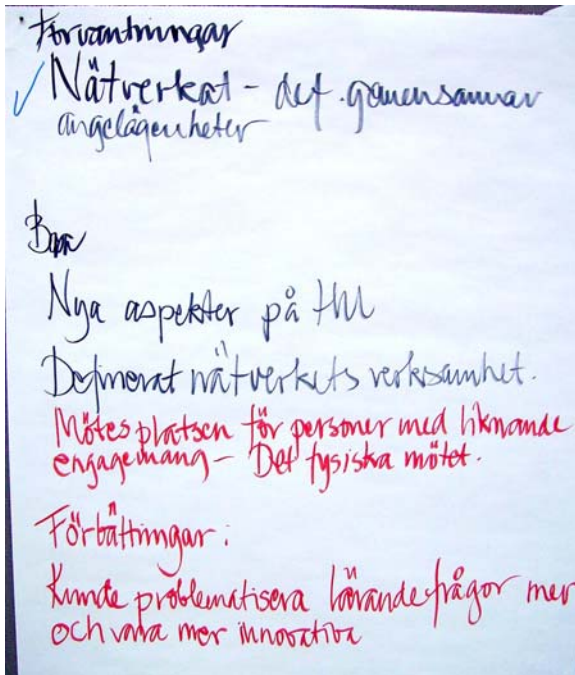 Förväntningar
Nätverkat - def. gemensamma
angelägenheter
Bra
Nya aspekter på HU
Definierat nätverkets verksamhet.
Mötesplatsen för personer med liknande
engagemang - Det fysiska mötet.
Förbättringar:
Kunde problematisera lärandefrågor mer
och vara mer innovativa